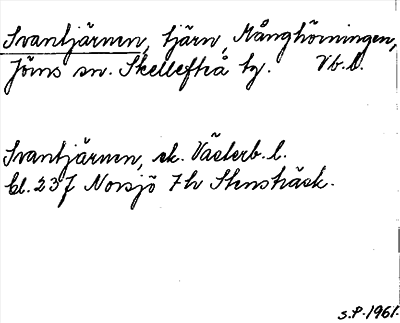 Svantjärnen, tjärn, Månghörningen,
Jörns sn. Skellefteå tg. Vb.l.
Svantjärnen, ek. Västerb. l.
bl. 237 Norsjö 7h Stensträsk.
S.P. 1961.